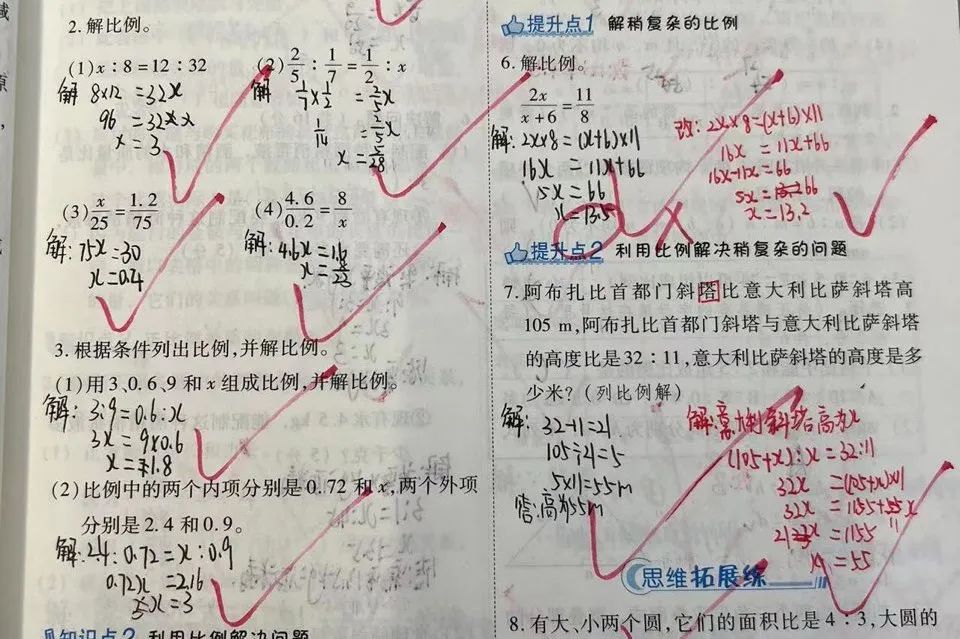 2.解比例。
(1)x∶8=12∶32
(2)2/5∶1/7=1/2∶x
解 8×12=32x
96=32x
x=3
解 1/7×1/2=2/5x
1/14=2/5x
x=5/28
(3)x/25=1.2/75
(4)4.6/0.2=8/x
解:75x=30
x=0.4
解:4.6x=1.6
x=8/23
3.根据条件列出比例,并解比例。
(1)用3、0.6、9和x组成比例,并解比例。
解:3:9=0.6:x
3x=9×0.6
x=1.8
(2)比例中的两个内项分别是0.72和x,两个外项
分别是2.4和0.9。
解:2.4:0.72=x:0.9
0.72x=2.16
x=3
知识点2 利用比例解决问题
提升点1 解稍复杂的比例
6.解比例。
2x/x+6=11/8
解:2x×8=(x+6)×11
16x=11x+66
15x=66
x=13.5
改:2x×8=(x+6)×11
16x=11x+66
16x-11x=66
5x=66
x=13.2
提升点2 利用比例解决稍复杂的问题
7.阿布扎比首都门斜塔比意大利比萨斜塔高
105 m,阿布扎比首都门斜塔与意大利比萨斜塔
的高度比是32∶11,意大利比萨斜塔的高度是多
少米?(列比例解)
解:32-11=21
105÷21=5
5×11=55m
答:高为55m
解:斜塔高为x
(105+x):x=32:11
32x=(105+x)×11
32x=1155+11x
21x=1155
x=55
思维拓展练
8.有大、小两个圆,它们的面积比是4∶3,大圆的